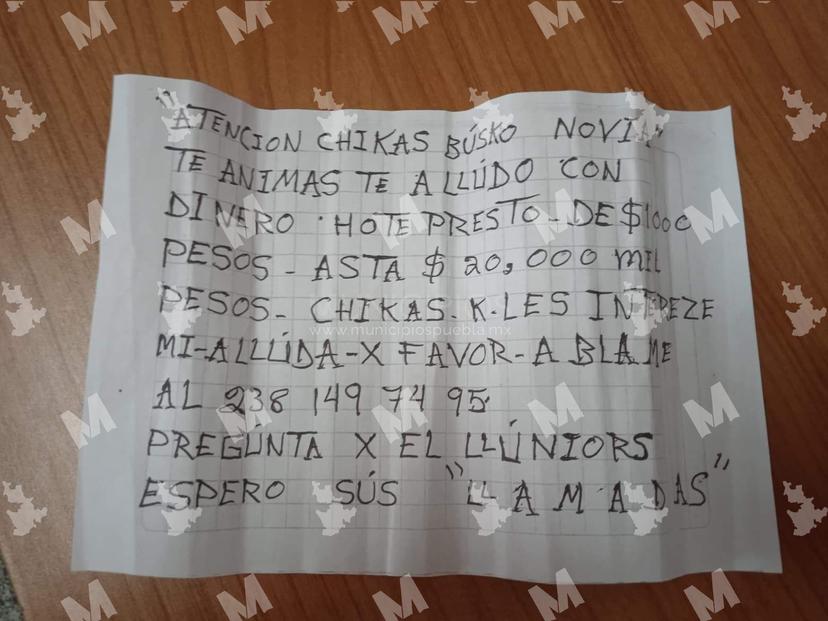 "ATENCION CHIKAS BÚSKO NOVIA"
TE ANIMAS TE ALLÚDO CON
DINERO · HOTE PRESTO - DE $1000
PESOS - ASTA $ 20,000 MIL
PESOS - CHIKAS - K - LES INTEREZE
www.municipiospuebla.mx
MI - ALLLÚDA - X FAVOR - A BLAME
AL 238 149 74 95
PREGÚNTA X EL LLÚNIORS
ESPERO SÚS "LLAMADAS"